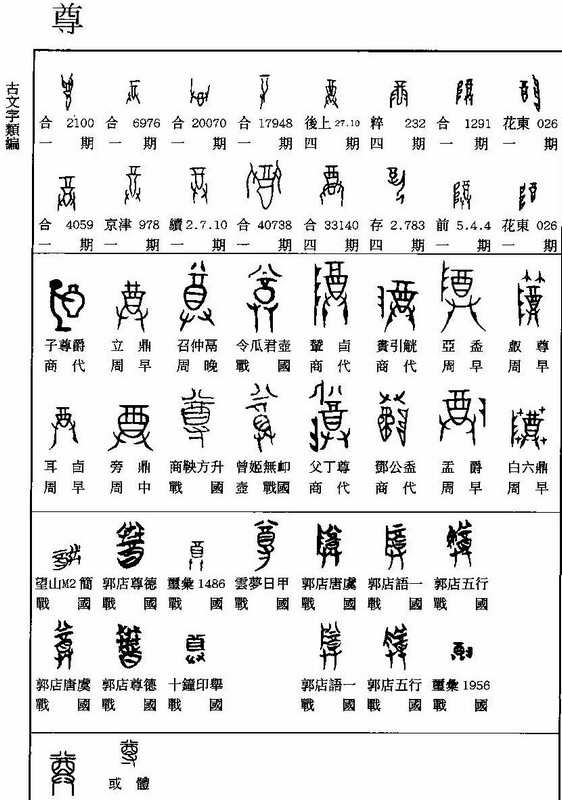 尊
古文字類編
合 2100 合 6976 合 20070 合 17948 後上 27.10 粹 232 合 1291 花東 026
一期 一期 一期 一期 四期 四期 一期 一期
合 4059 京津 978 續 2.7.10 合 40738 合 33140 存 2.783 前 5.4.4 花東 026
一期 一期 一期 一期 四期 四期 一期 一期
子尊爵 立鼎 召仲鬲 令瓜君壺 卣 引觥 亞盉 尊
商代 周早 周晚 戰國 商代 商代 周早 周早
耳卣 旁鼎 商鞅方升 曾姬無卹 父丁尊 鄧公盉 盂爵 白六鼎
周早 周中 戰國 壺 戰國 商代 商代 周早 周早
望山M2簡 郭店尊德 璽彙 1486 雲夢日甲 郭店唐虞 郭店語一 郭店五行
戰國 戰國 戰國 戰國 戰國 戰國 戰國
郭店唐虞 郭店尊德 十鐘印舉 郭店語一 郭店五行 璽彙 1956
戰國 戰國 戰國 戰國 戰國 戰國
或體